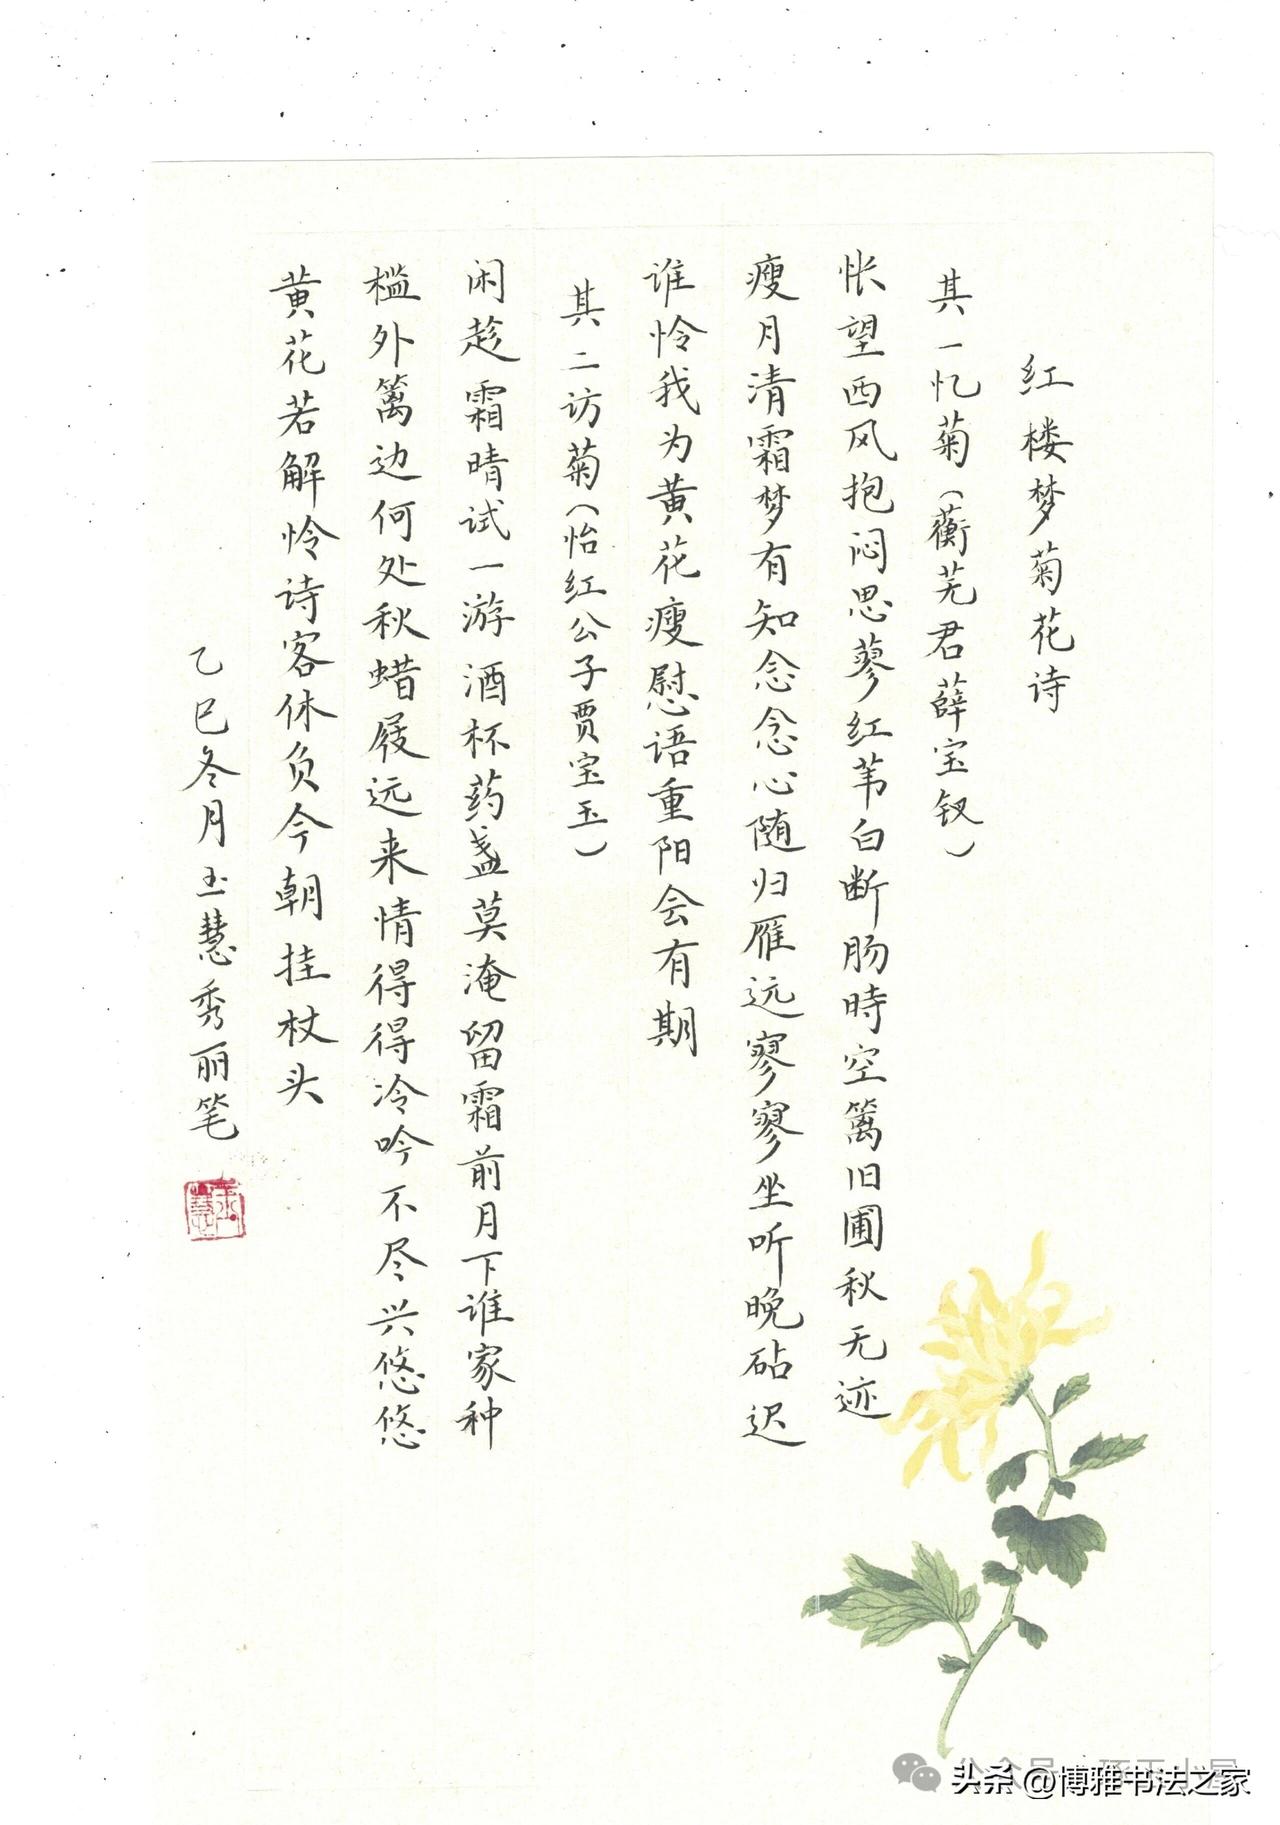 红楼梦菊花诗
其一忆菊（蘅芜君薛宝钗）
怅望西风抱闷思蓼红苇白断肠時空篱旧圃秋无迹
瘦月清霜梦有知念念心随归雁远寥寥坐听晚砧迟
谁怜我为黄花瘦慰语重阳会有期
其二访菊（怡红公子贾宝玉）
闲趁霜晴试一游酒杯药盏莫淹留霜前月下谁家种
槛外篱边何处秋蜡屐远来情得得冷吟不尽兴悠悠
黄花若解怜诗客休负今朝挂杖头
乙巳冬月玉慧秀丽笔
头条 @博雅书法之家